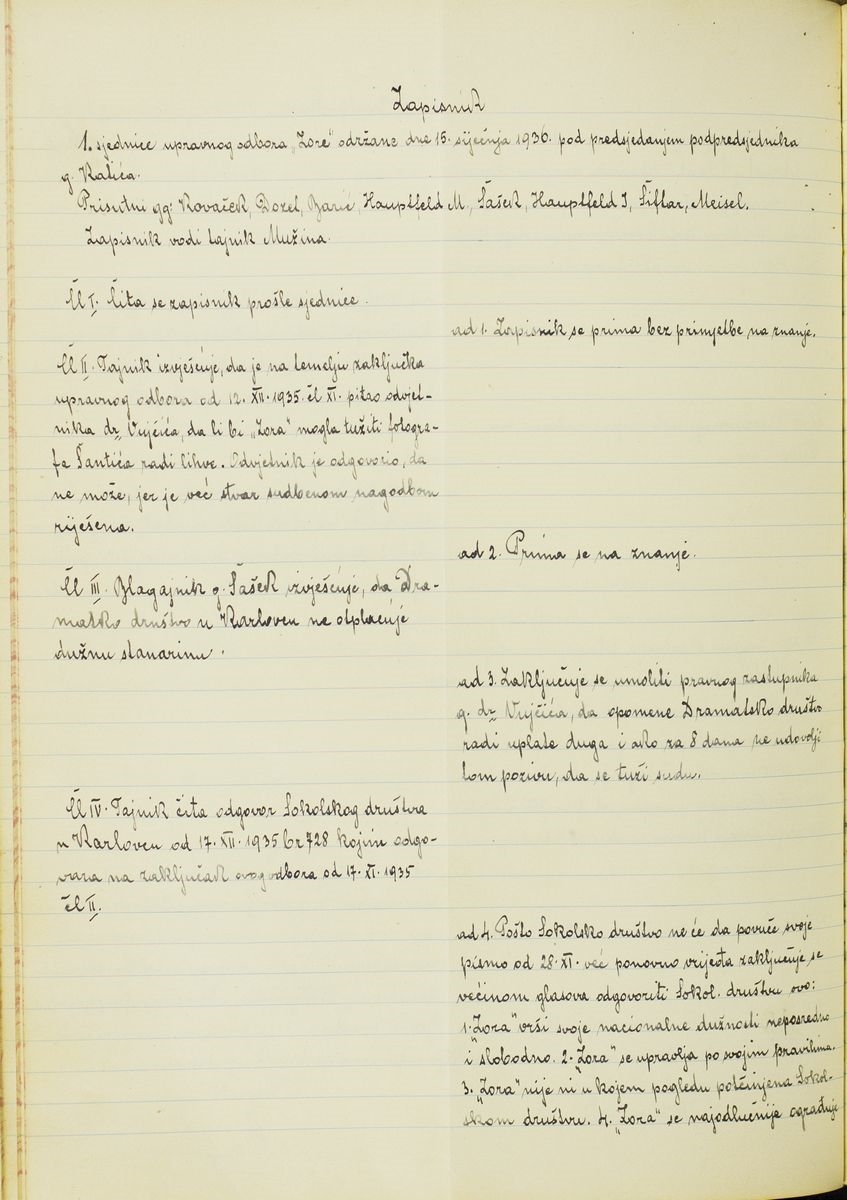 Zapisnik
1. sjednice upravnog odbora „Zore" održane dne 15. siječnja 1936. pod predsjedanjem podpredsjednika
g. Katića.
Prisutni gg: Kovaček, Dozel, Barić, Hauptfeld M., Šašek, Hauptfeld I, Šiftar, Meisel.
Zapisnik vodi tajnik Mužina.
Čl I. Čita se zapisnik prošle sjednice.
ad 1. Zapisnik se prima bez primjetbe na znanje.
Čl II. Tajnik izvješćuje, da je na temelju zaključka
upravnog odbora od 12. XII. 1935. čl XI. pitao odvjet-
nika dr Vujčića, da li bi „Zora" mogla tužiti fotogra-
fa Šantića radi lihve. Odvjetnik je odgovorio, da
ne može, jer je već stvar sudbenom nagodbom
riješena.
ad 2. Prima se na znanje.
Čl III. Blagajnik g. Šašek izvješćuje, da Dra-
matsko društvo u Karlovcu ne otplaćuje
dužnu stanarinu.
ad 3. Zaključuje se umoliti pravnog zastupnika
g. dr Vujčića, da opomene Dramatsko društvo
radi uplate duga i ako za 8 dana ne udovolji
tom pozivu, da se tuži sudu.
Čl IV. Tajnik čita odgovor Sokolskog društva
u Karlovcu od 17. XII. 1935 br 728 kojim odgo-
vara na zaključak ovog odbora od 17. XI. 1935
čl II.
ad 4. Pošto Sokolsko društvo ne će da povuče svoje
pismo od 28. XI. već ponovno vrijeđa zaključuje se
većinom glasova odgovoriti Sokol. društvu ovo:
1. „Zora" vrši svoje nacionalne dužnosti neposredno
i slobodno. 2. „Zora" se upravlja po svojim pravilima.
3. „Zora" nije ni u kojem pogledu potčinjena Sokol-
skom društvu. 4. „Zora" se najodlučnije ograđuje